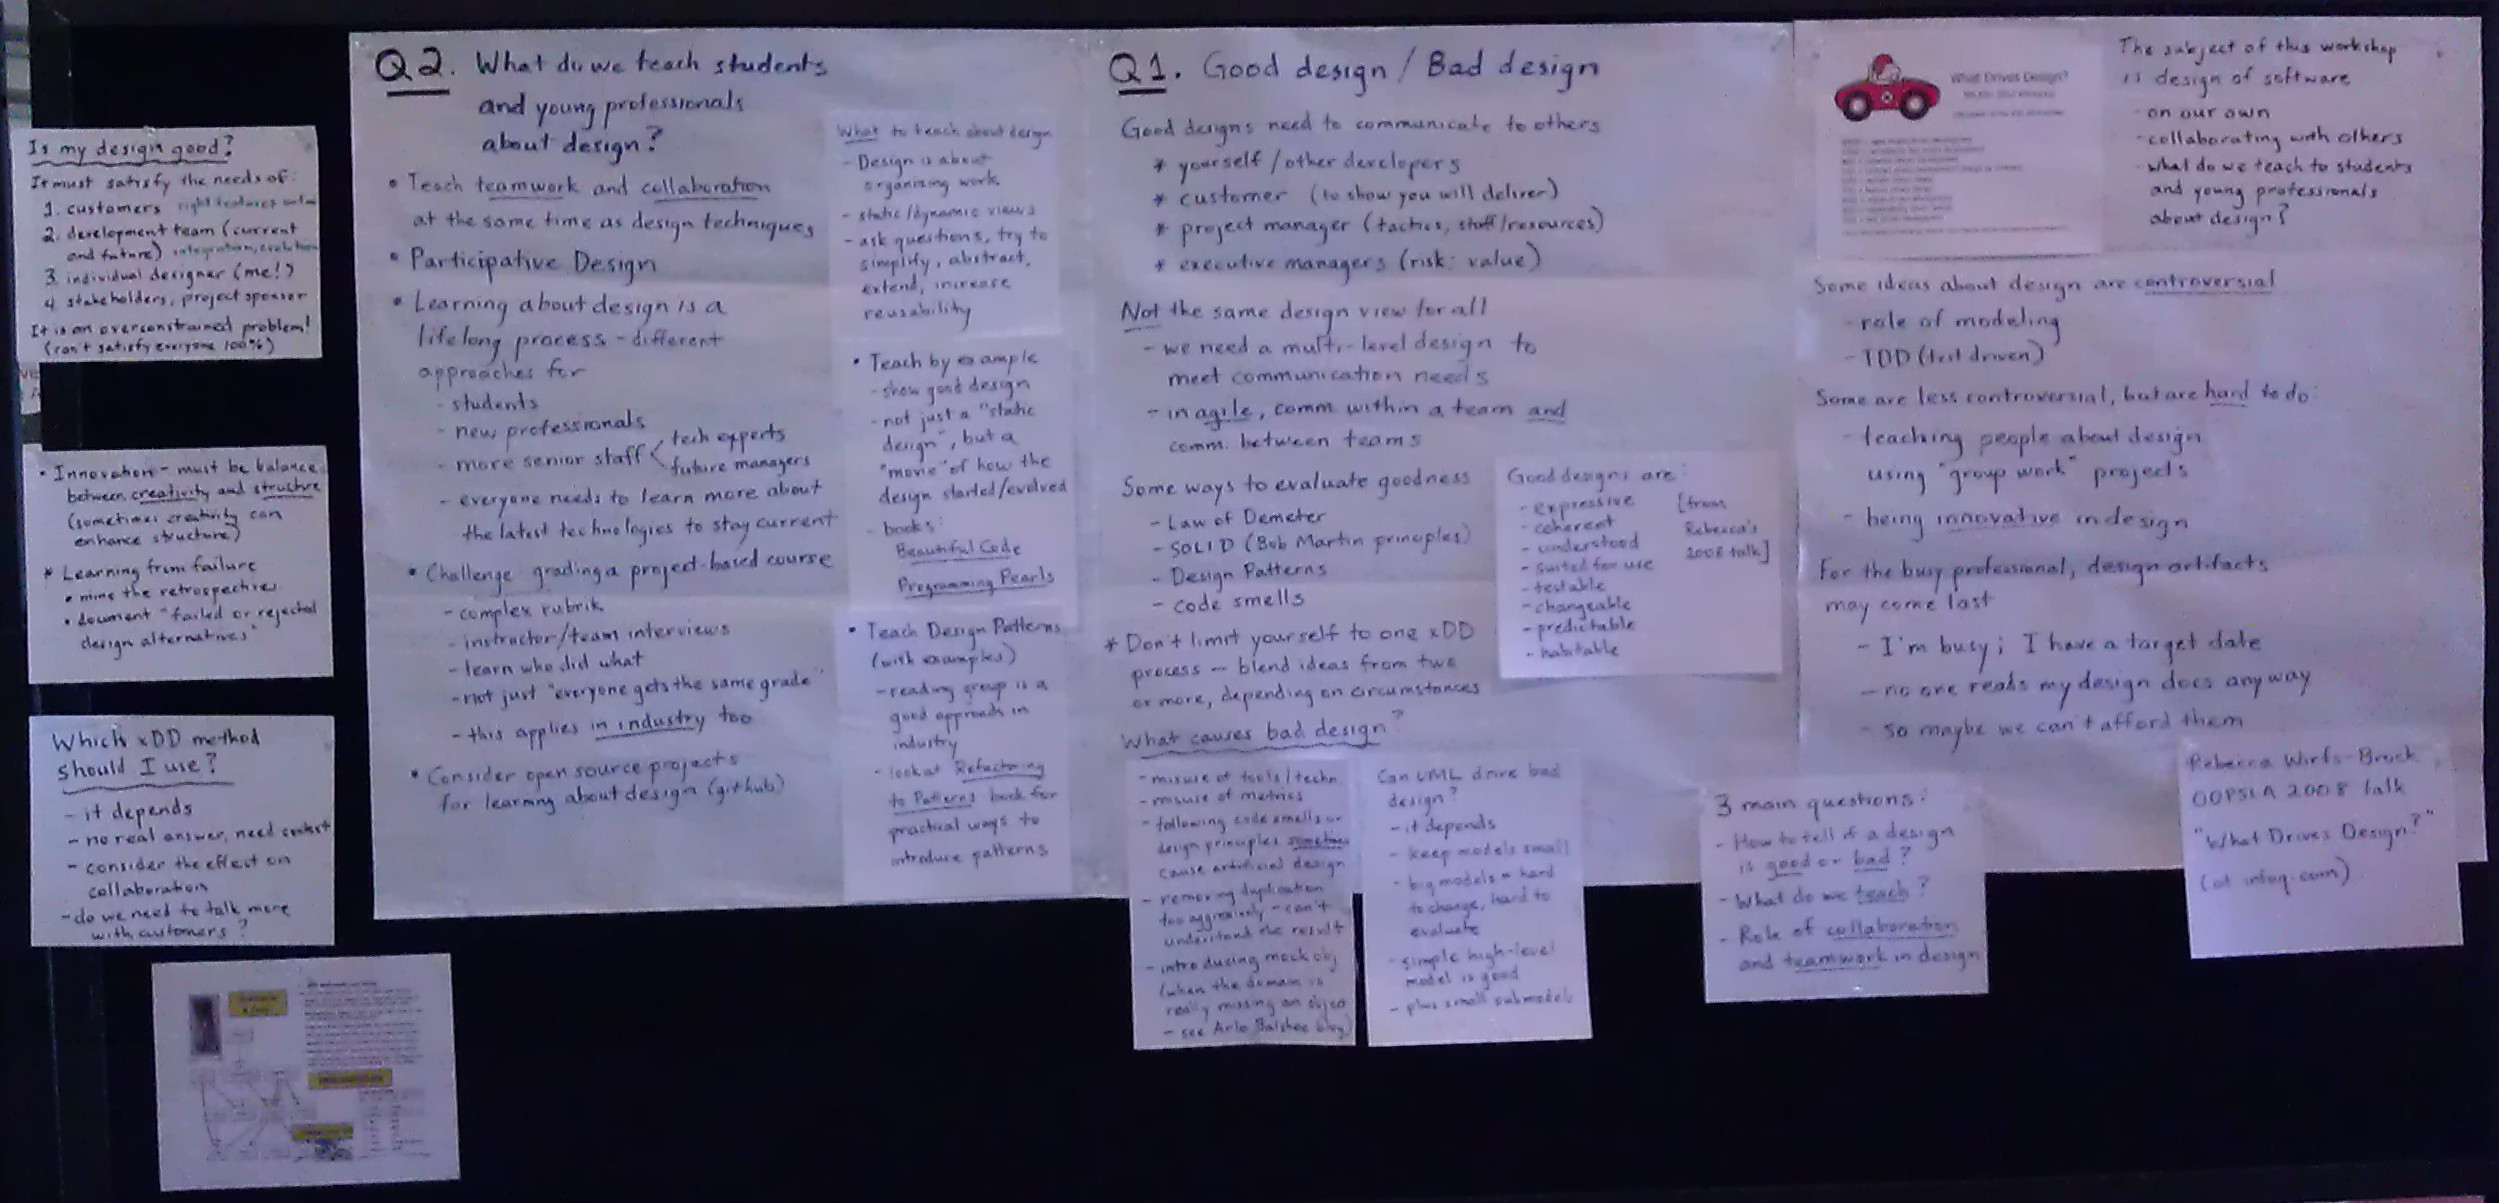 Is my design good?
It must satisfy the needs of:
1. customers right features
2. development team (current
and future) integration, evolution
3. individual designer (me!)
4. stakeholders, project sponsor
It is an overconstrained problem!
(can't satisfy everyone 100%)
• Innovation - must be balance
between creativity and structure
(sometimes creativity can
enhance structure)
* Learning from failure
• mine the retrospectives
• document "failed or rejected
design alternatives"
Which xDD method
should I use?
- it depends
- no real answer, need context
- consider the effect on
collaboration
- do we need to talk more
with customers?
Q2. What do we teach students
and young professionals
about design?
• Teach teamwork and collaboration
at the same time as design techniques
• Participative Design
• Learning about design is a
lifelong process - different
approaches for
- students
- new professionals
- more senior staff < tech experts
future managers
- everyone needs to learn more about
the latest technologies to stay current
• Challenge: grading a project-based course
- complex rubrik
- instructor/team interviews
- learn who did what
- not just "everyone gets the same grade"
- this applies in industry too
• Consider open source projects
for learning about design (github)
What to teach about design
- Design is about
organizing work
- static/dynamic views
- ask questions, try to
simplify, abstract,
extend, increase
reusability
• Teach by example
- show good design
- not just a "static
design", but a
"movie" of how the
design started/evolved
- books:
Beautiful Code
Programming Pearls
• Teach Design Patterns
(with examples)
- reading group is a
good approach in
industry
- look at Refactoring
to Patterns book for
practical ways to
introduce patterns
Q1. Good design / Bad design
Good designs need to communicate to others
* yourself / other developers
* customer (to show you will deliver)
* project manager (tactics, staff/resources)
* executive managers (risk: value)
Not the same design view for all
- we need a multi-level design to
meet communication needs
- in agile, comm. within a team and
comm. between teams
Some ways to evaluate goodness
- Law of Demeter
- SOLID (Bob Martin principles)
- Design Patterns
- code smells
* Don't limit yourself to one xDD
process - blend ideas from two
or more, depending on circumstances
What causes bad design?
Good designs are:
- expressive [from
- coherent Rebecca's
- understood 2008 talk]
- suited for use
- testable
- changeable
- predictable
- habitable
- misuse of tools/techn
- misuse of metrics
- following code smells or
design principles sometimes
cause artificial design
- removing duplication
too aggressively - can't
understand the result
- introducing mock obj
(when the domain is
really missing an object
- see Arlo Belshee blog)
Can UML drive bad
design?
- it depends
- keep models small
- big models = hard
to change, hard to
evaluate
- simple high-level
model is good
- plus small submodels
What Drives Design?
The subject of this workshop
is design of software
- on our own
- collaborating with others
- what do we teach to students
and young professionals
about design?
Some ideas about design are controversial
- role of modeling
- TDD (test driven)
Some are less controversial, but are hard to do:
- teaching people about design
using "group work" projects
- being innovative in design
For the busy professional, design artifacts
may come last
- I'm busy; I have a target date
- no one reads my design docs anyway
- so maybe we can't afford them
3 main questions:
- How to tell if a design
is good or bad?
- What do we teach?
- Role of collaboration
and teamwork in design
Rebecca Wirfs-Brock
OOPSLA 2008 talk
"What Drives Design?"
(at infoq.com)